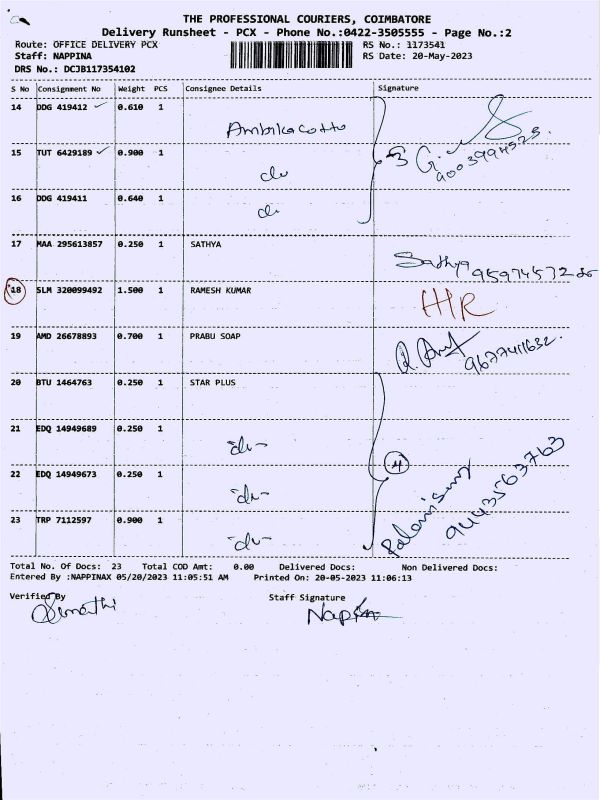 THE PROFESSIONAL COURIERS, COIMBATORE
Delivery Runsheet - PCX - Phone No.:0422-3505555 - Page No.:2
Route: OFFICE DELIVERY PCX RS No.: 1173541
Staff: NAPPINA RS Date: 20-May-2023
DRS No.: DCJB117354102
S No Consignment No Weight PCS Consignee Details Signature
14 DDG 419412 0.610 1
15 TUT 6429189 0.900 1 do
3 G. 9003994525.
16 DDG 419411 0.640 1 do
17 MAA 295613857 0.250 1 SATHYA
Sathya
18 SLM 320099492 1.500 1 RAMESH KUMAR HR
19 AMD 26678893 0.700 1 PRABU SOAP
9677411632.
20 BTU 1464763 0.250 1 STAR PLUS
21 EDQ 14949689 0.250 1 -do-
22 EDQ 14949673 0.250 1 -do-
4
9443563763
23 TRP 7112597 0.900 1 -do-
Total No. Of Docs: 23 Total COD Amt: 0.00 Delivered Docs: Non Delivered Docs:
Entered By :NAPPINAX 05/20/2023 11:05:51 AM Printed On: 20-05-2023 11:06:13
Verified By Staff Signature